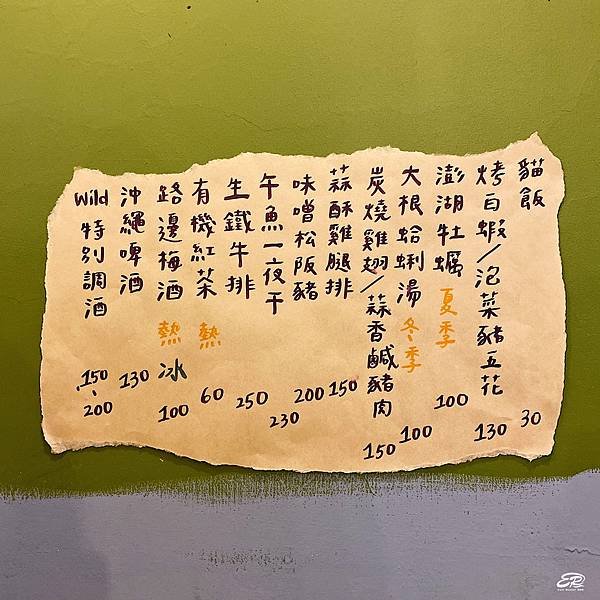 貓飯 30
烤白蝦/泡菜豬五花 130
澎湖牡蠣 夏季 100
大根蛤蜊湯 冬季 100
炭燒雞翅/蒜香鹹豬肉 150
蒜酥雞腿排 150
味噌松阪豬 200
午魚一夜干 230
生鐵牛排 250
有機紅茶 熱 60
路邊梅酒 熱 冰 100
沖繩啤酒 130
Wild 特別調酒 150、200
ER